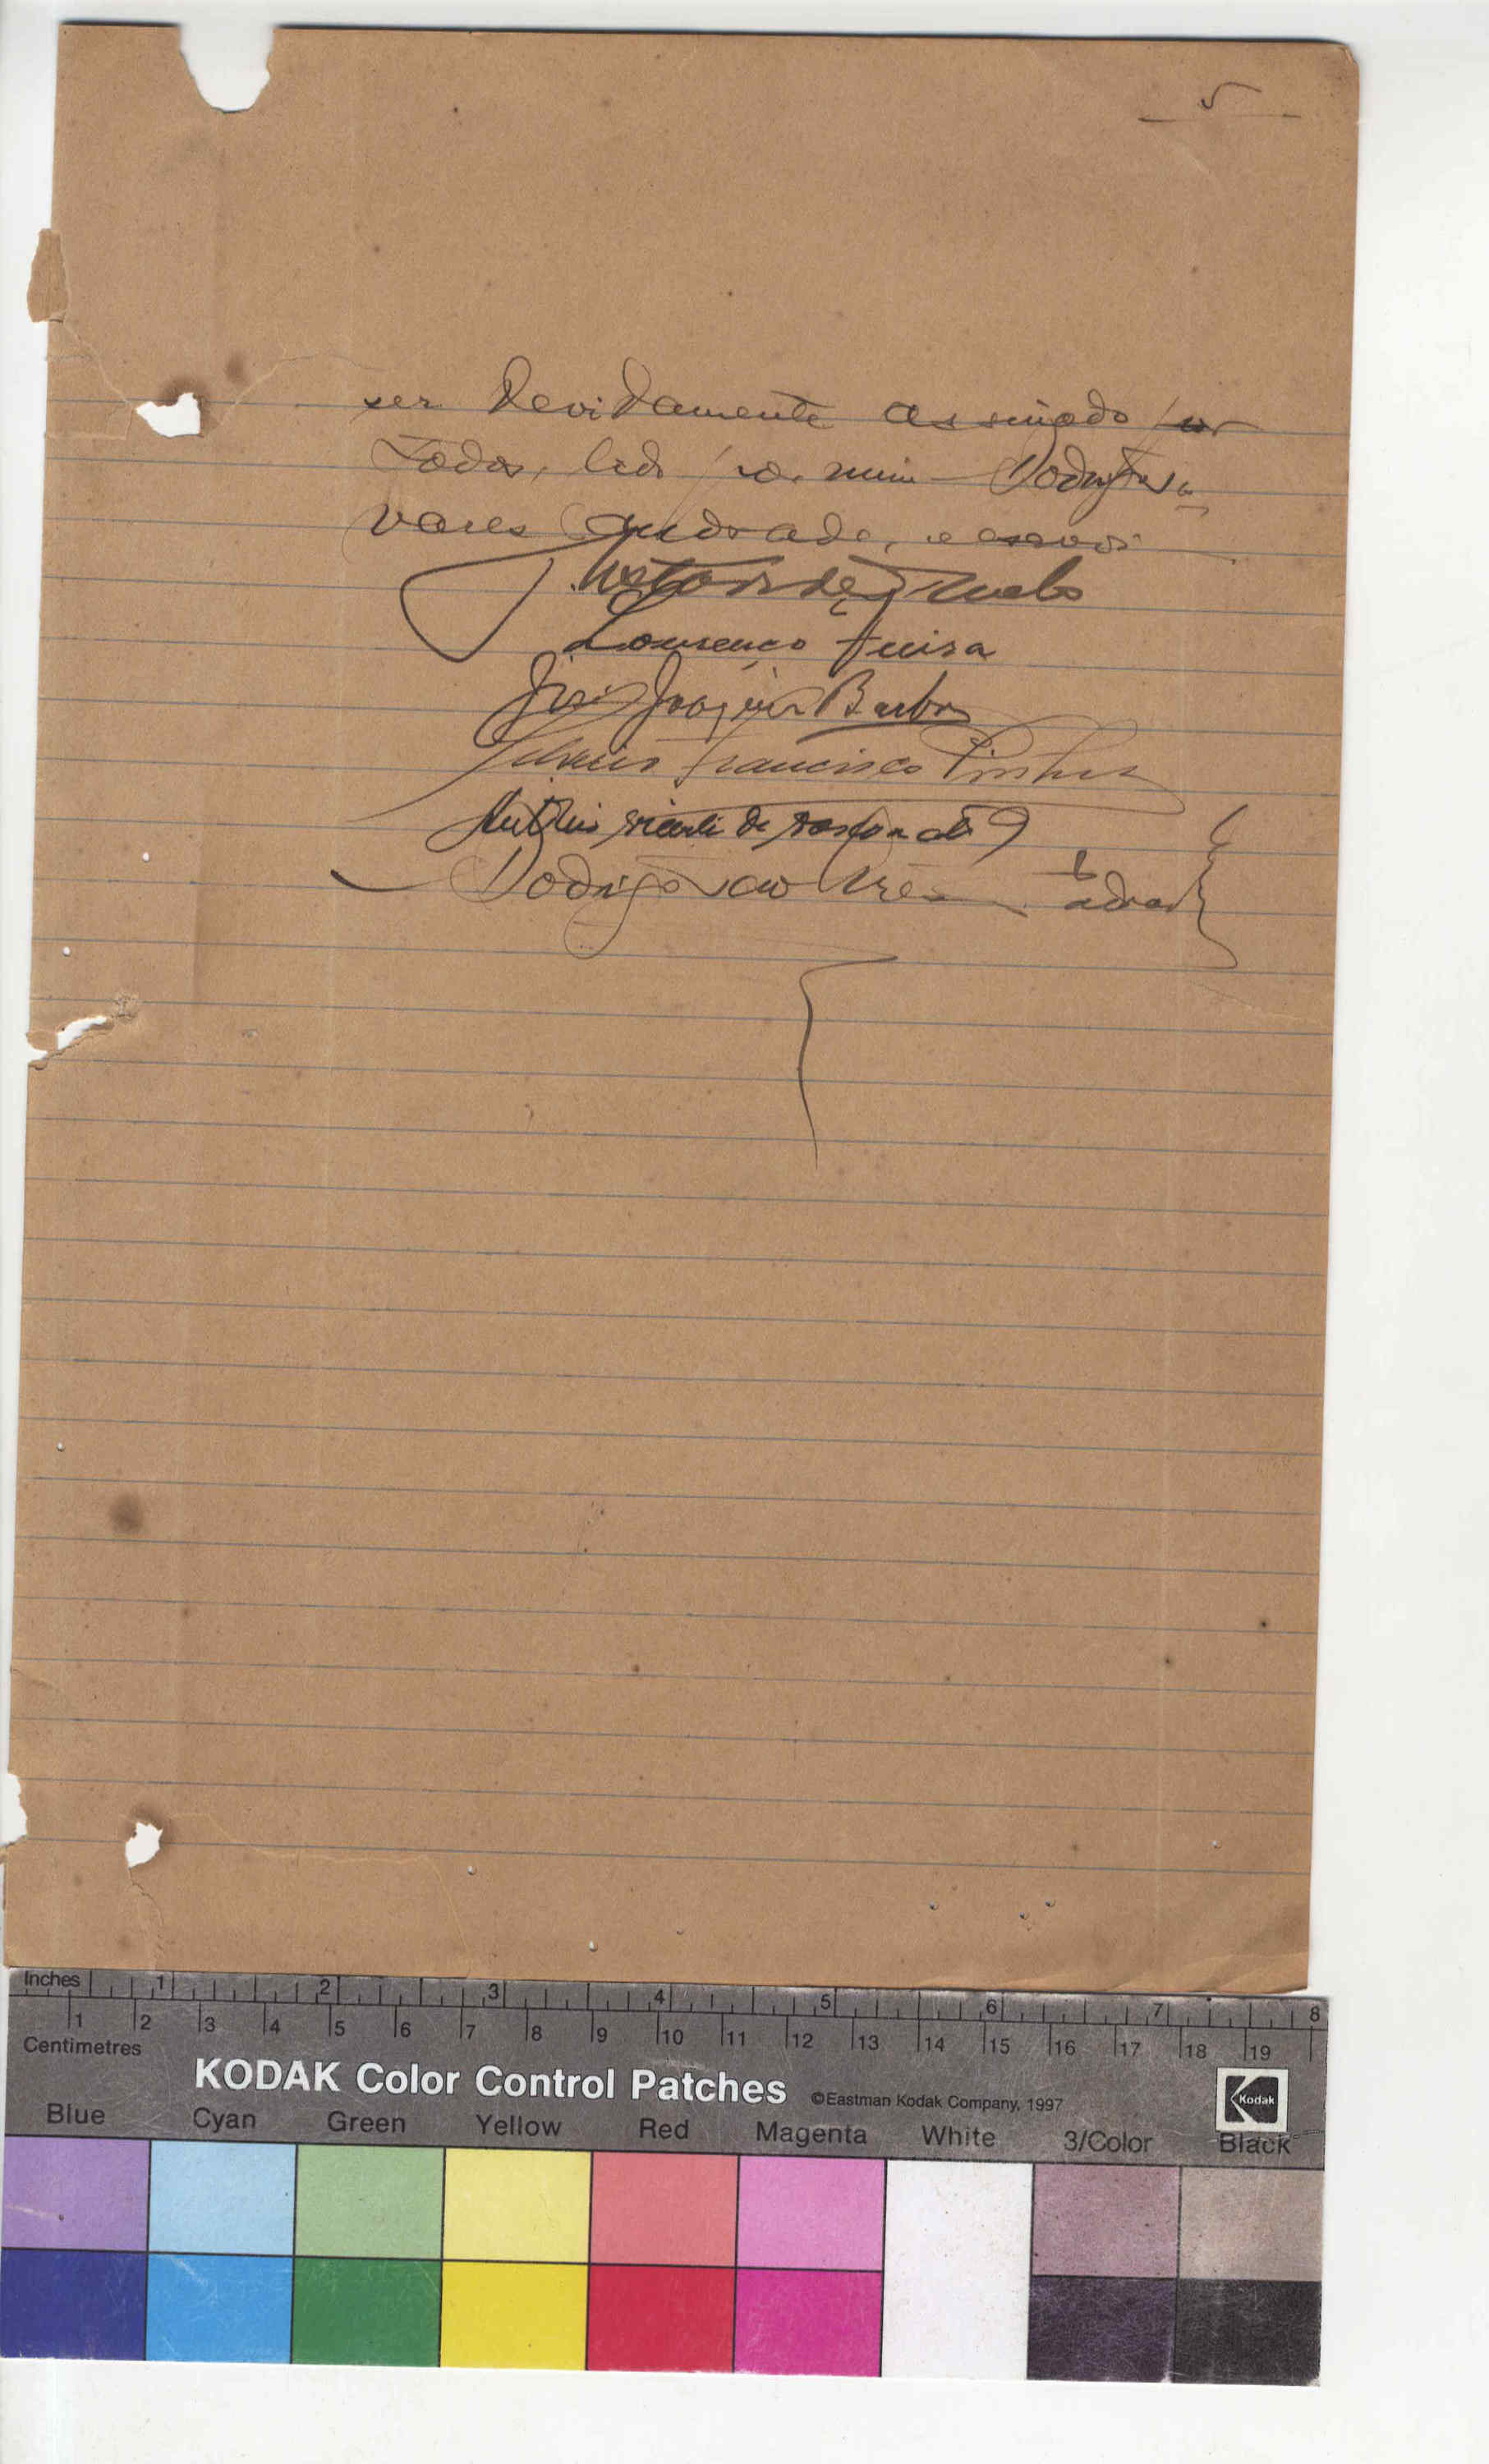 5
ser devidamente assignado por
todos, lido por mim Rodrigo Ta
vares Andrade, e escrevi
Lourenço
José Joaquim Barbosa
Francisco Pinheiro
Antonio Vicente de
Rodrigo Tavares Andrade
Inches 1 2 3 4 5 6 7 8
1 2 3 4 5 6 7 8 9 10 11 12 13 14 15 16 17 18 19
Centimetres
KODAK Color Control Patches ©Eastman Kodak Company, 1997 Kodak
Blue Cyan Green Yellow Red Magenta White 3/Color Black